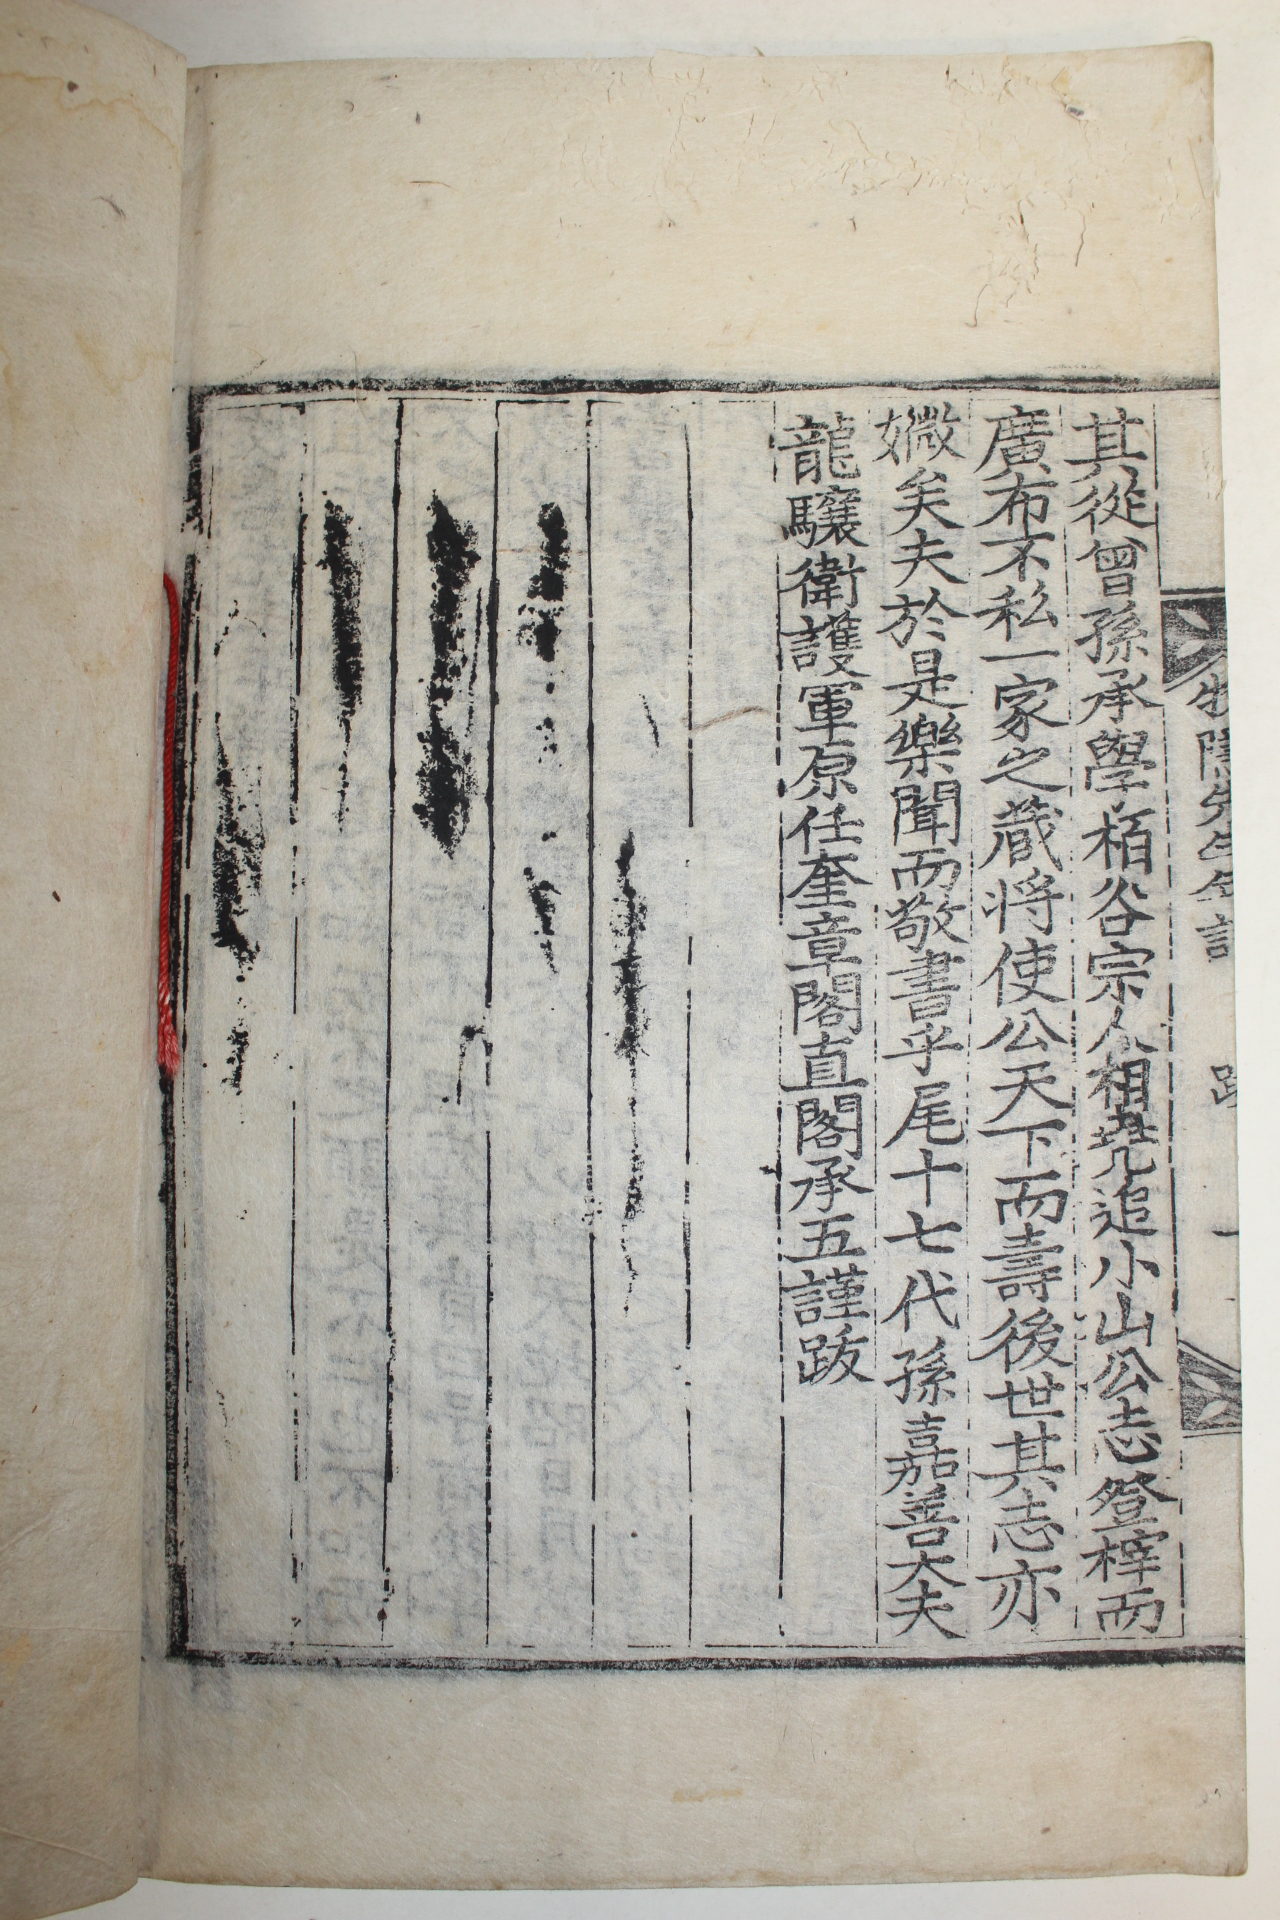 其從曾孫承學栢谷宗人相堯追小山公志登梓而
廣布不私一家之蔵将使公天下而壽後世其志亦
媺矣夫於是樂聞而敬書乎尾十七代孫嘉善大夫
龍驤衛護軍原任奎章閣直閣承五謹跋